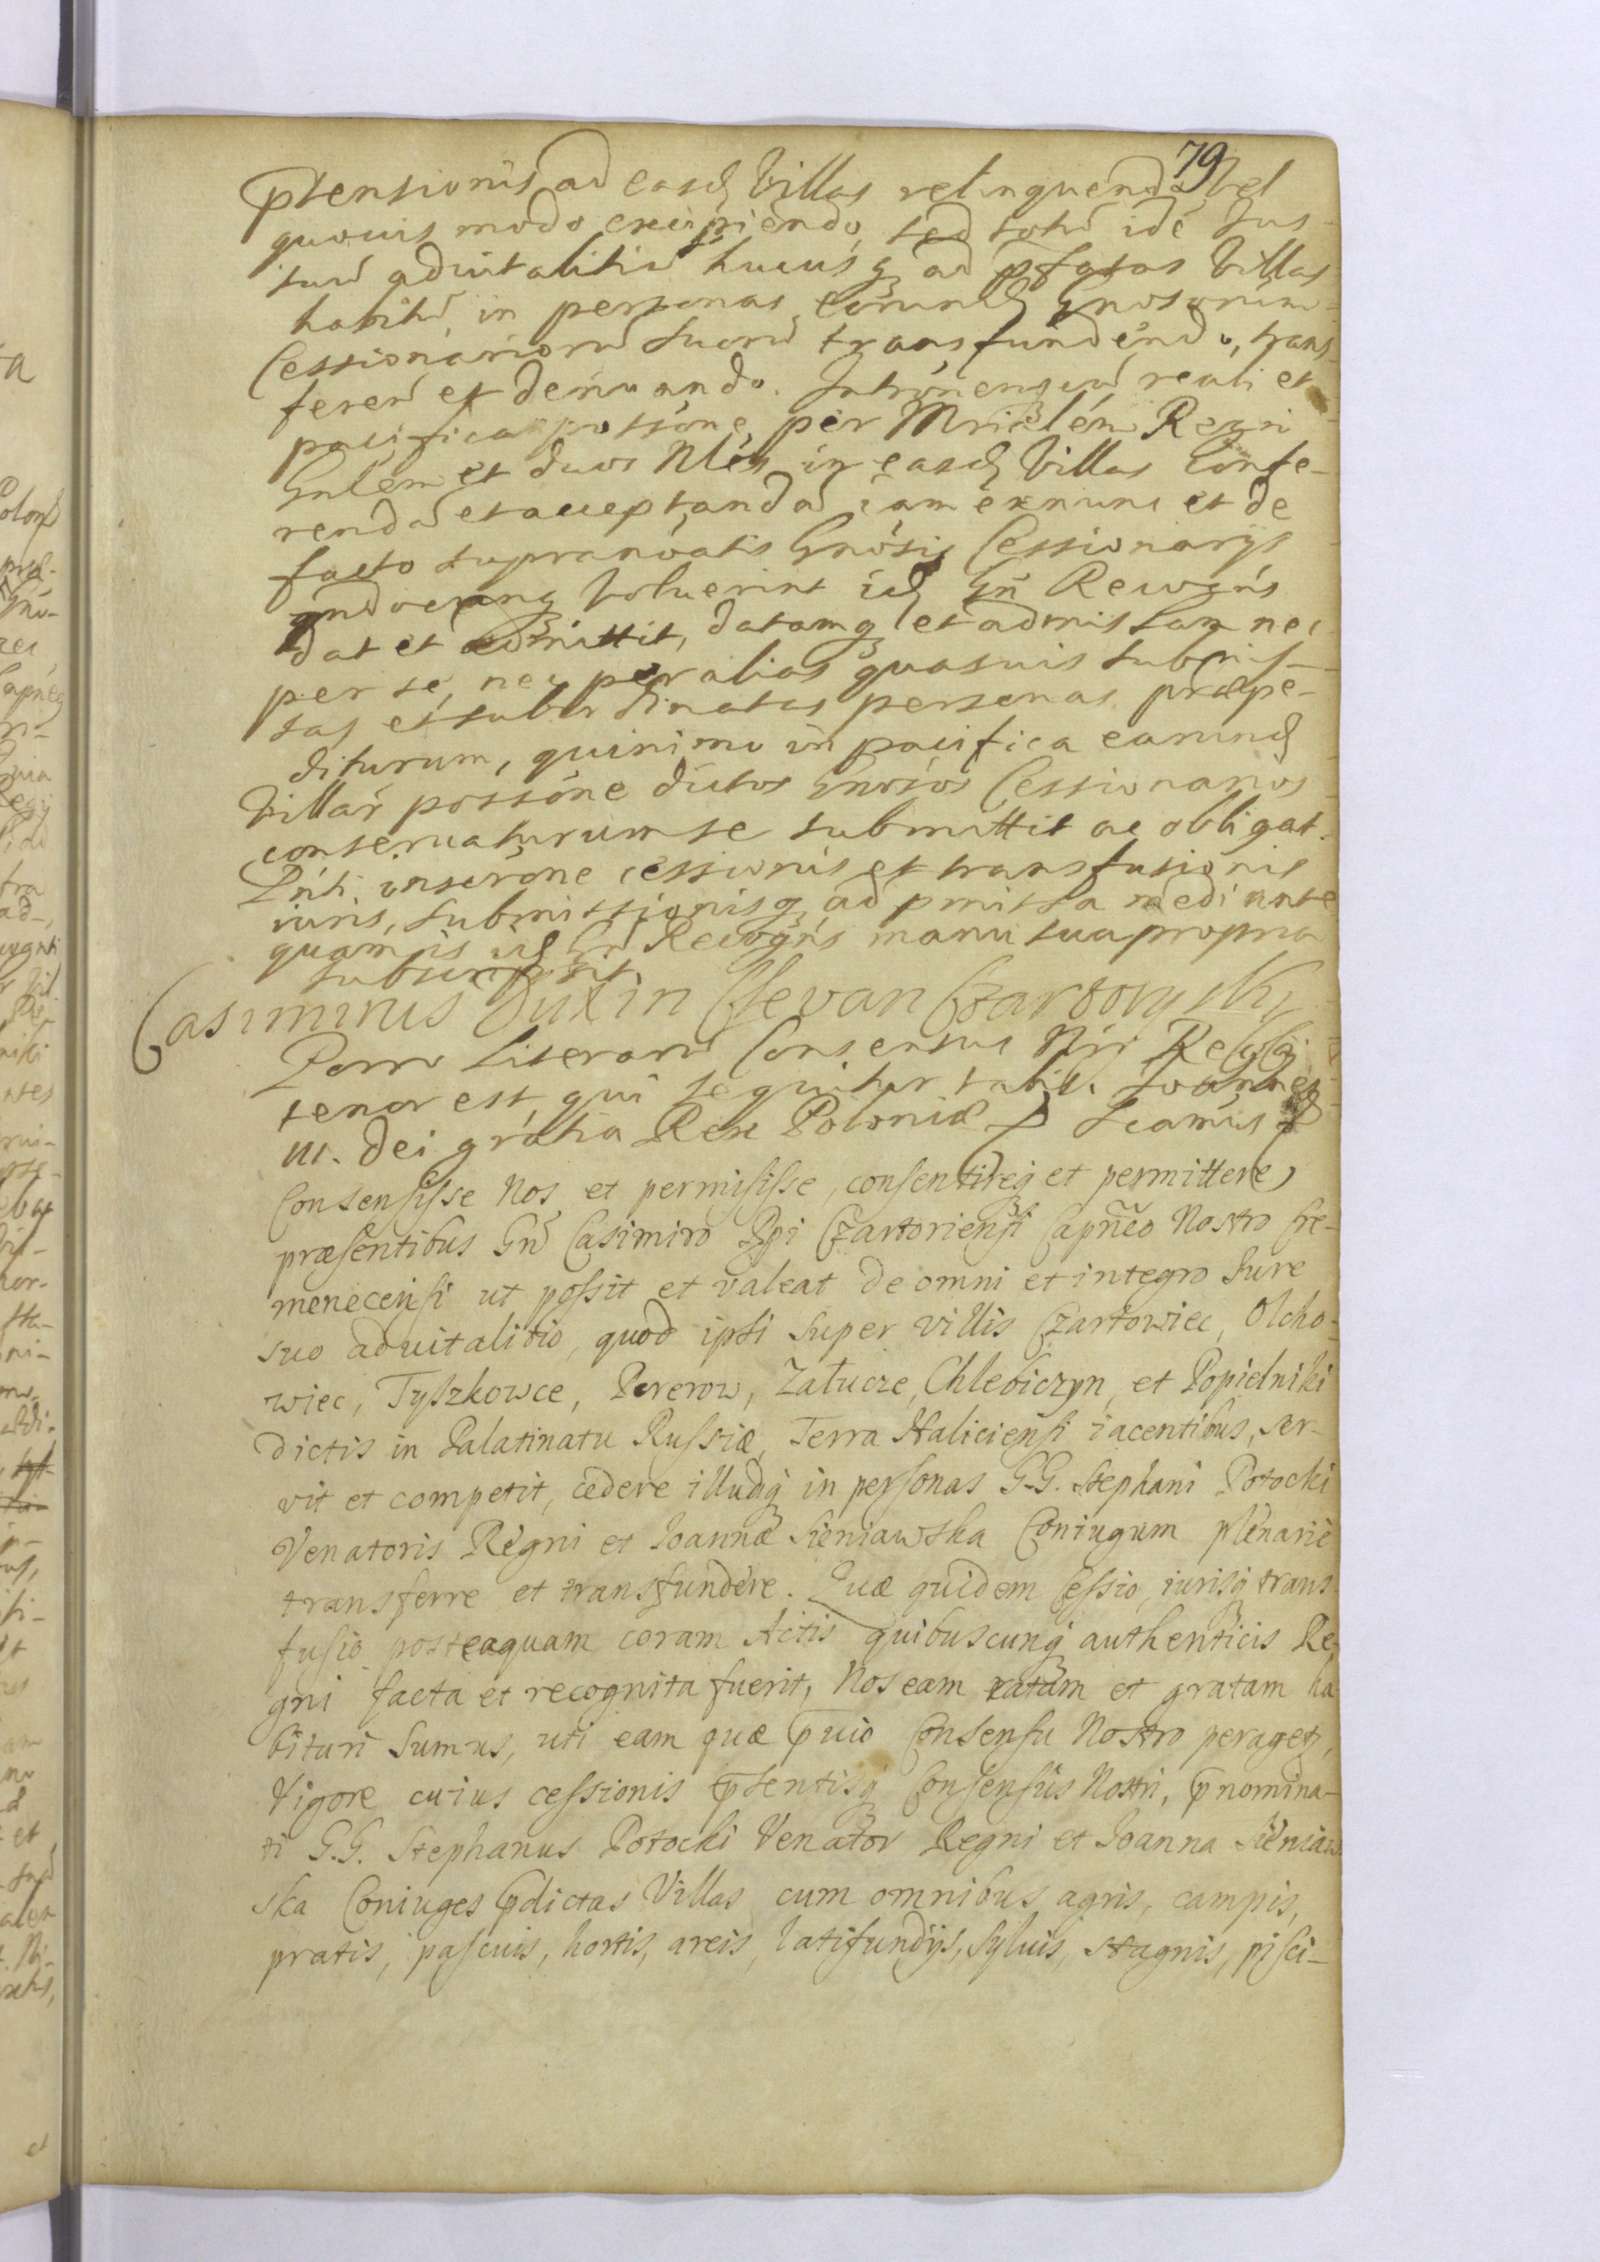 79
ptensionis ad easd Villas relinquendo Vel
quovis modo excipiendo, sed totu ide Jus
suu aduitalitiu hucusq ad pfatas Villas
habitu, in personas eorund Gnosorum
Cessionarioru suoru transfundendo, trans-
feren et deriuando. Intromenq reali et
pacifica possione per Mrialem Regni
Gnlem et duos Nles in easd Villas Confe-
renda et acceptanda iam exnunc et de
facto supranoatis Gnosis Cessionarijs
qndocunq Voluerint id Gn Recogns
dat et admittit, datamq et admissam nec
per se, nec per alias quasuis submis-
sas et subordinatas personas præpe-
diturum, quinimo in pacifica earund
Villar possione dictos Gnosos Cessionarios
conseruaturum se submittit ac obligat.
Pnti inscrone cessionis et transfusionis
iuris, submissionisq ad pmissa mediante
quam is id Gn Recogns manu sua propria
subscripsit.
Casimirus Dux in Clevan Czartoryski
Porro Literaru Consensus Nri
tenor est qui sequitur talis. Joannes
III. Dei gratia Rex Poloniæ
Consensisse Nos et permisisse, consentireq et permittere
præsentibus Gn Casimiro Czartoriensi Capneo Nostro Cre-
menecensi ut possit et valeat de omni et integro Jure
suo aduitalitio, quod ipsi super villis Czartowiec, Olcho-
wiec, Tyszkowce, Pererow, Załucze, Chlebiczyn, et Popielniki
dictis in Palatinatu Russiæ, Terra Haliciensi iacentibus, ser-
vit et competit, cedere illudq in personas G.G. Stephani Potocki
Venatoris Regni et Joannæ Sieniawska Coniugum plenarie
transferre et transfundere. Quæ quidem Cessio, iurisq trans
fusio posteaquam coram Actis quibuscunq authenticis Re-
gni facta et recognita fuerit, Nos eam ratam et gratam ha
bituri sumus, uti eam quæ pvio Consensu Nostro peraget,
Vigore cuius cessionis psentisq Consensus Nostri, pnomina-
ti G.G. Stephanus Potocki Venator Regni et Joanna Sieniaw
ska Coniuges pdictas Villas cum omnibus agris, campis,
pratis, pascuis, hortis, areis, latifundijs, syluis, stagnis, pisci-